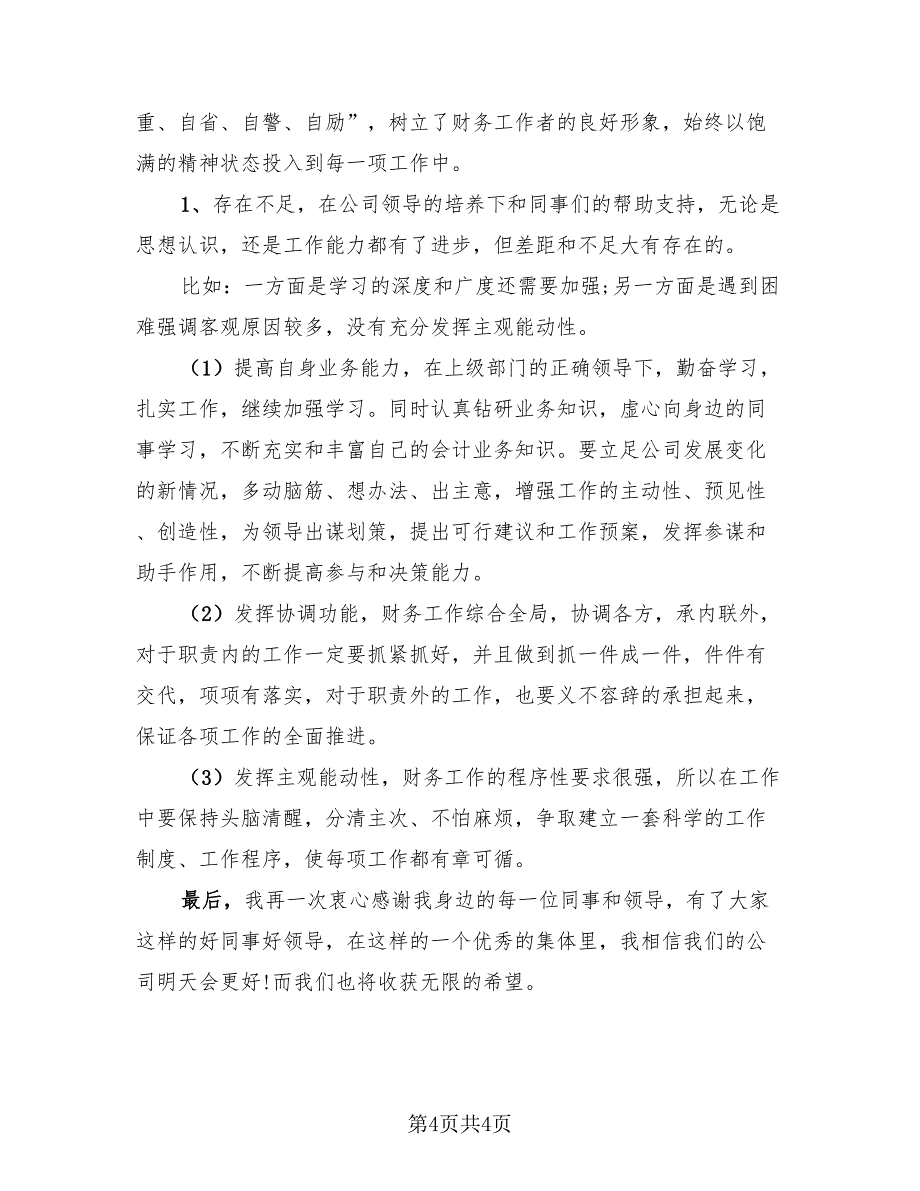 重、自省、自警、自励”，树立了财务工作者的良好形象，始终以饱
满的精神状态投入到每一项工作中。
1、存在不足，在公司领导的培养下和同事们的帮助支持，无论是
思想认识，还是工作能力都有了进步，但差距和不足大有存在的。
比如：一方面是学习的深度和广度还需要加强;另一方面是遇到困
难强调客观原因较多，没有充分发挥主观能动性。
（1）提高自身业务能力，在上级部门的正确领导下，勤奋学习，
扎实工作，继续加强学习。同时认真钻研业务知识，虚心向身边的同
事学习，不断充实和丰富自己的会计业务知识。要立足公司发展变化
的新情况，多动脑筋、想办法、出主意，增强工作的主动性、预见性
、创造性，为领导出谋划策，提出可行建议和工作预案，发挥参谋和
助手作用，不断提高参与和决策能力。
（2）发挥协调功能，财务工作综合全局，协调各方，承内联外，
对于职责内的工作一定要抓紧抓好，并且做到抓一件成一件，件件有
交代，项项有落实，对于职责外的工作，也要义不容辞的承担起来，
保证各项工作的全面推进。
（3）发挥主观能动性，财务工作的程序性要求很强，所以在工作
中要保持头脑清醒，分清主次、不怕麻烦，争取建立一套科学的工作
制度、工作程序，使每项工作都有章可循。
最后，我再一次衷心感谢我身边的每一位同事和领导，有了大家
这样的好同事好领导，在这样的一个优秀的集体里，我相信我们的公
司明天会更好!而我们也将收获无限的希望。
第4页共4页